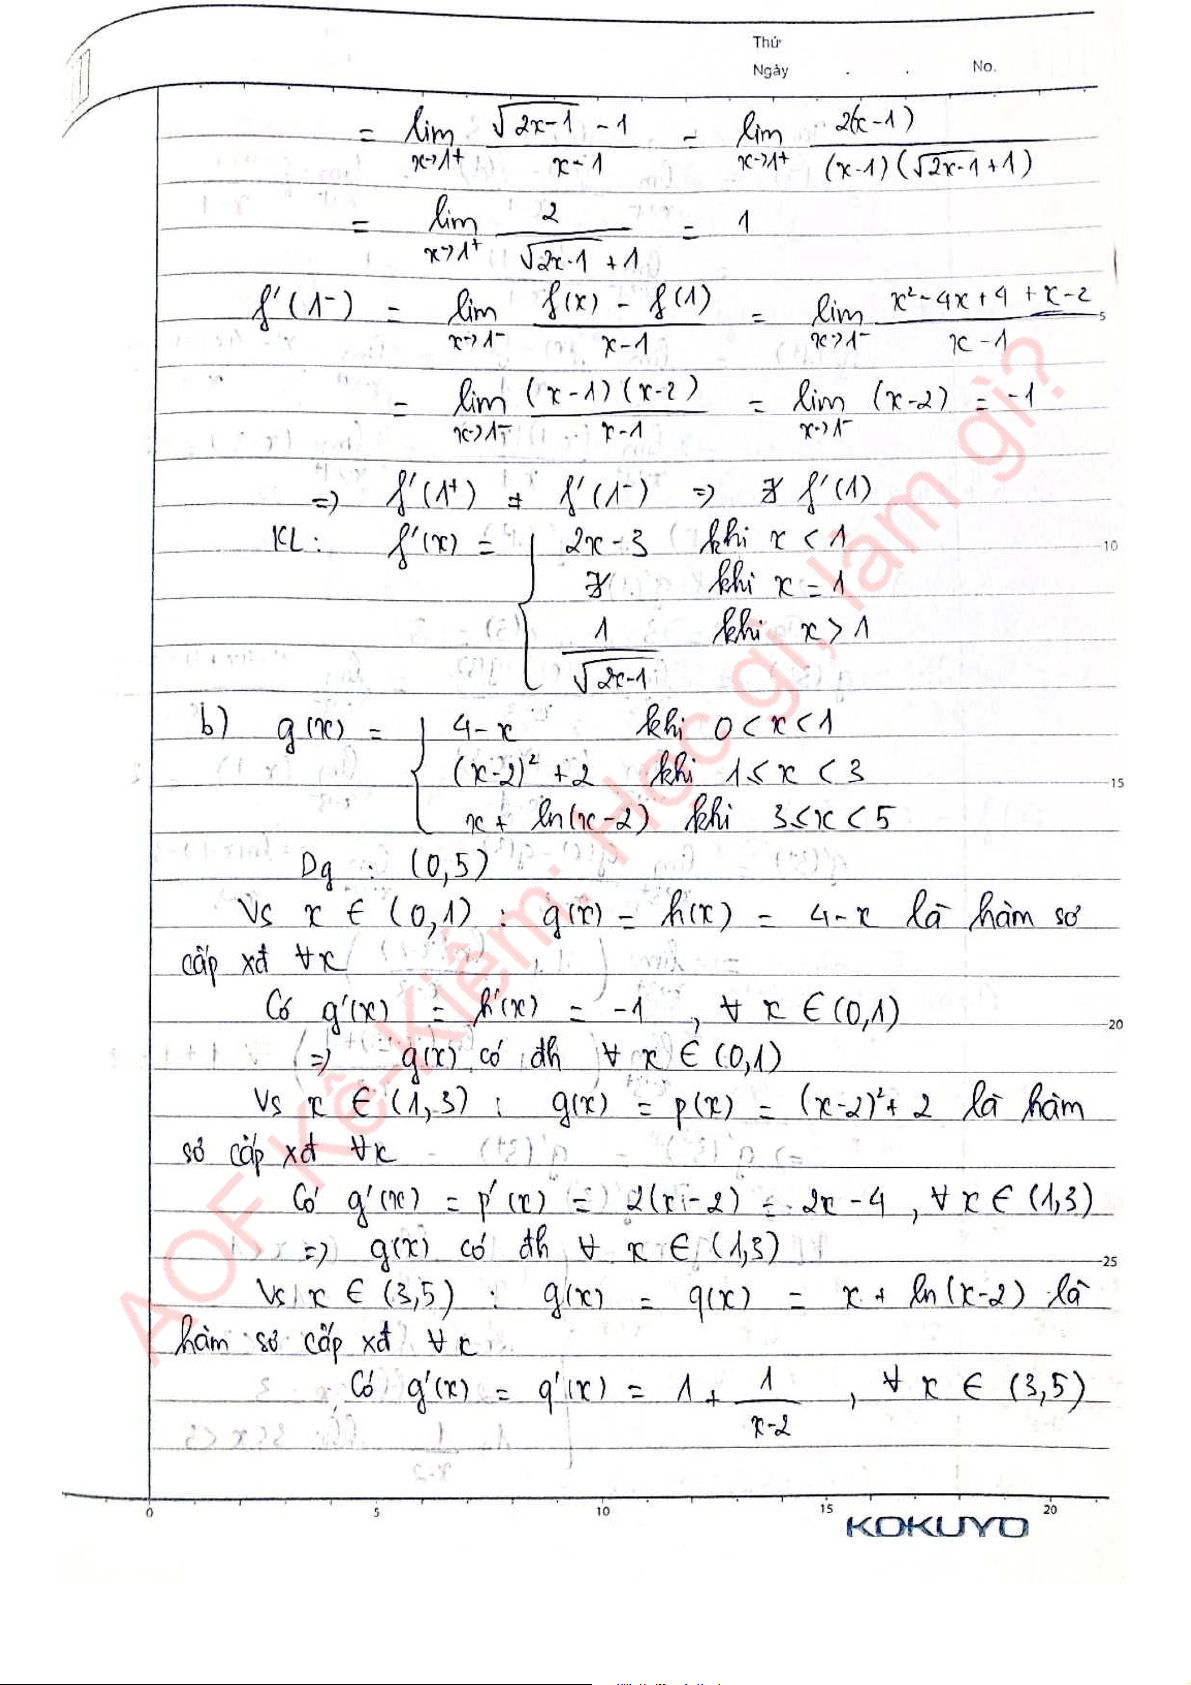 Thứ
Ngày . . No.
= lim x→1+ (√(2x-1) - 1)/(x-1) = lim x→1+ 2(x-1)/((x-1)(√(2x-1)+1))
= lim x→1+ 2/(√(2x-1)+1) = 1
f'(1⁻) = lim x→1⁻ (f(x) - f(1))/(x-1) = lim x→1⁻ (x²-4x+4+x-2)/(x-1)
= lim x→1⁻ (x-1)(x-2)/(x-1) = lim x→1⁻ (x-2) = -1
=> f'(1⁺) ≠ f'(1⁻) => ∄ f'(1)
KL: f'(x) = { 2x-3 khi x < 1
∄ khi x = 1
1/√(2x-1) khi x > 1
b) g(x) = { 4-x khi 0 < x < 1
(x-2)² + 2 khi 1 ≤ x < 3
x + ln(x-2) khi 3 ≤ x < 5
Dg : (0,5)
Vs x ∈ (0,1) : g(x) = h(x) = 4-x là hàm sơ
cấp xđ ∀x
Có g'(x) = h'(x) = -1 , ∀ x ∈ (0,1)
=> g(x) có đh ∀ x ∈ (0,1)
Vs x ∈ (1,3) : g(x) = p(x) = (x-2)² + 2 là hàm
sơ cấp xđ ∀x
Có g'(x) = p'(x) = 2(x-2) = 2x-4 , ∀ x ∈ (1,3)
=> g(x) có đh ∀ x ∈ (1,3)
Vs x ∈ (3,5) : g(x) = q(x) = x + ln(x-2) là
hàm sơ cấp xđ ∀x
Có g'(x) = q'(x) = 1 + 1/(x-2) , ∀ x ∈ (3,5)
5
10
15
20
25
0 5 10 15 20
KOKUYO
AOF Kê-Kiêm: Học gì, làm gì?